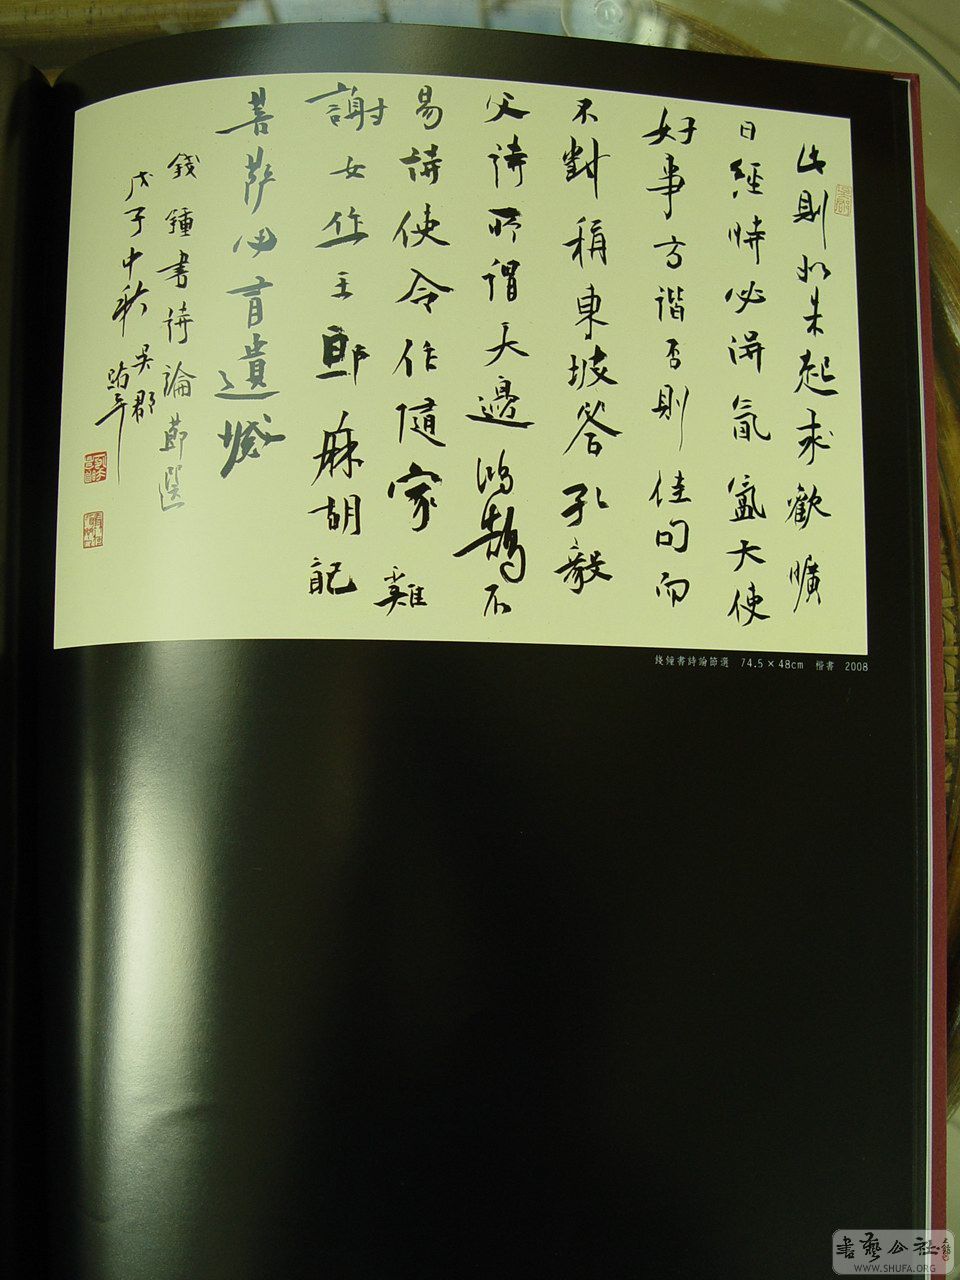 此則如朱起求歡曠
日經時必得氤氳大使
好事方諧否則佳句而
不對稱東坡答孔毅
父詩所謂天邊鴻鵠不
易得使令作隨家雞
謝女作王郎麻胡配
菩薩遺憾
錢鍾書詩論節選
戊子中秋吳郡
錢鍾書詩論節選 74.5×48cm 楷書 2008
書藝公社
WWW.SHUFA.ORG